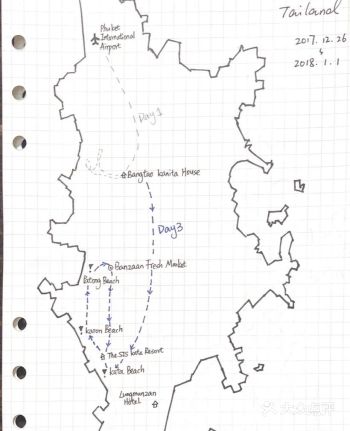 Tailand
2017.12.26
1
2018.1.1
Phuket
International
Airport
Day1
Bangtao kanita House
Day3
Banzaan Fresh Market
Patong Beach
karon Beach
The SIS kata Resort
kata Beach
Lungmunzan
Hotel
大众点评